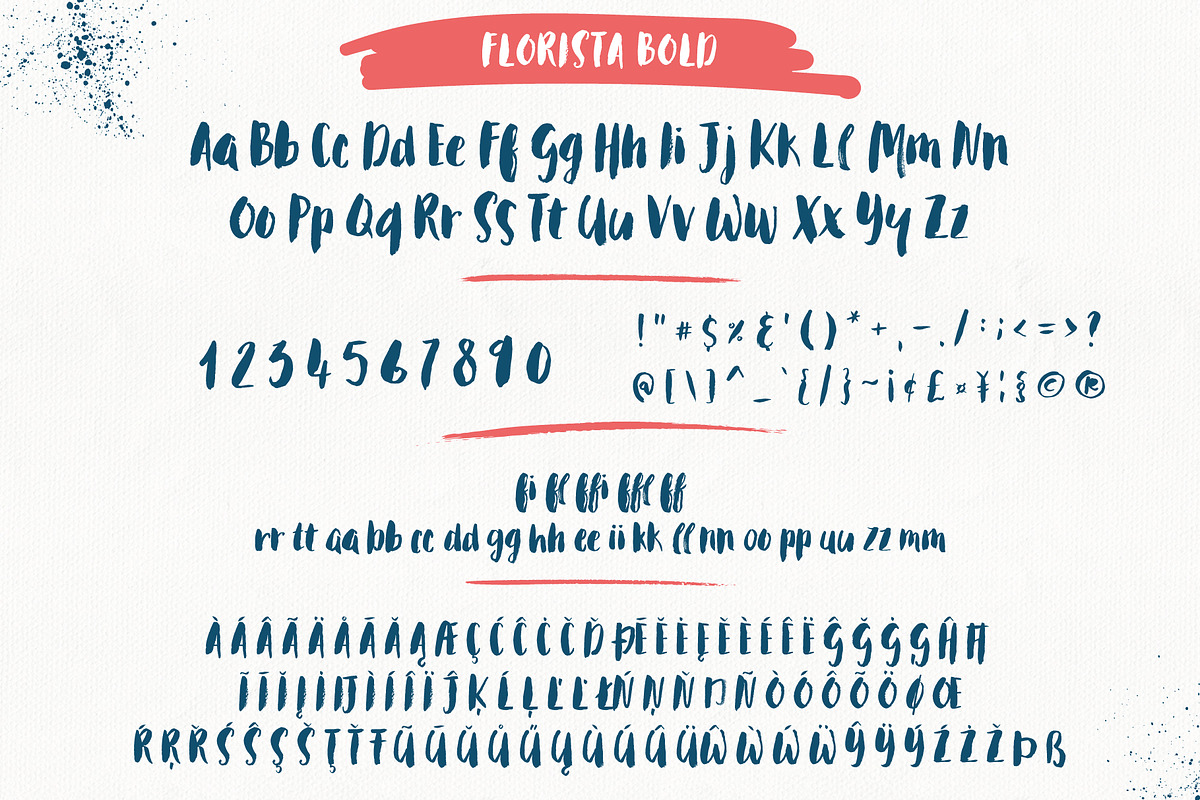 FLORISTA BOLD
Aa Bb Cc Dd Ee Ff Gg Hh Ii Jj Kk Ll Mm Nn
Oo Pp Qq Rr Ss Tt Uu Vv Ww Xx Yy Zz
1 2 3 4 5 6 7 8 9 0
! " # $ % & ' ( ) * + , - . / : ; < = > ?
@ [ \ ] ^ _ ` { / } ~ ¡ ¢ £ ¤ ¥ ¦ § © ®
fi fl ffi ffl ff
rr tt aa bb cc dd gg hh ee ii kk ll nn oo pp uu zz mm
À Á Â Ã Ä Å Ā Ă Ą Æ Ç Ć Ĉ Ċ Č Ď Đ Ē Ĕ Ė Ę Ě È É Ê Ë Ĝ Ğ Ġ Ģ Ĥ Ħ
Ĩ Ī Ĭ Į İ IJ Ì Í Î Ï Ĵ Ķ Ĺ Ļ Ľ Ŀ Ł Ń Ņ Ň Ŋ Ñ Ò Ó Ô Õ Ö Ø Œ
Ŕ Ŗ Ř Ś Ŝ Ş Š Ţ Ť Ŧ Ũ Ū Ŭ Ů Ű Ų Ù Ú Û Ü Ŵ Ẁ Ẃ Ẅ Ŷ Ÿ Ý Ź Ż Ž Þ ß